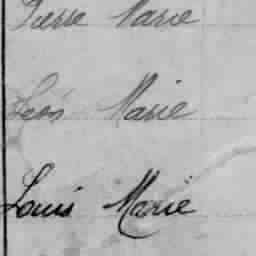 Pierre Marie
Léon Marie
Louis Marie